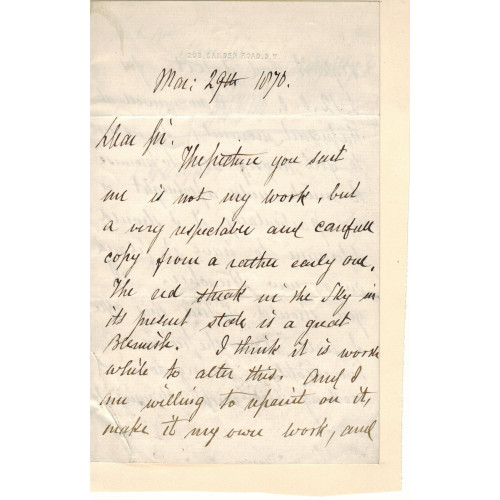 Mar: 29th 1870.
Dear Sir.
The picture you sent
me is not my work, but
a very respectable and carefull
copy from a rather early one.
The red streak in the Sky in
its present state is a great
Blemish. I think it is worth
while to alter this. And I
am willing to repaint on it,
make it my own work, and